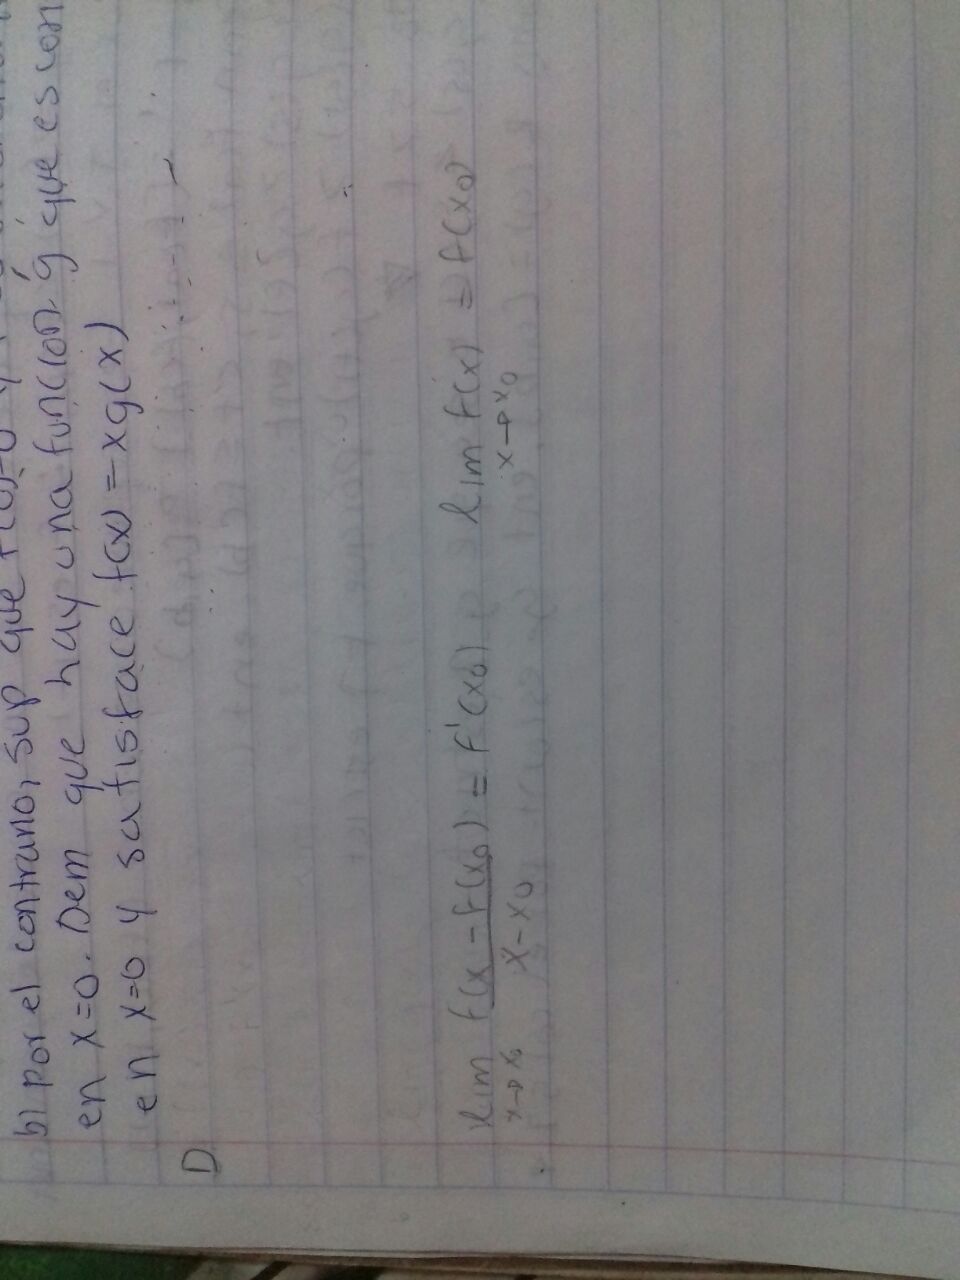 b) por el contrario, sup que f(0)=0 y f es
en x=0. Dem que hay una función g que es con
en x=0 y satisface f(x)=xg(x)
D
lim f(x-f(x₀) = f'(x₀) lim f(x) = f(x₀)
x→x₀ x-x₀ x→x₀